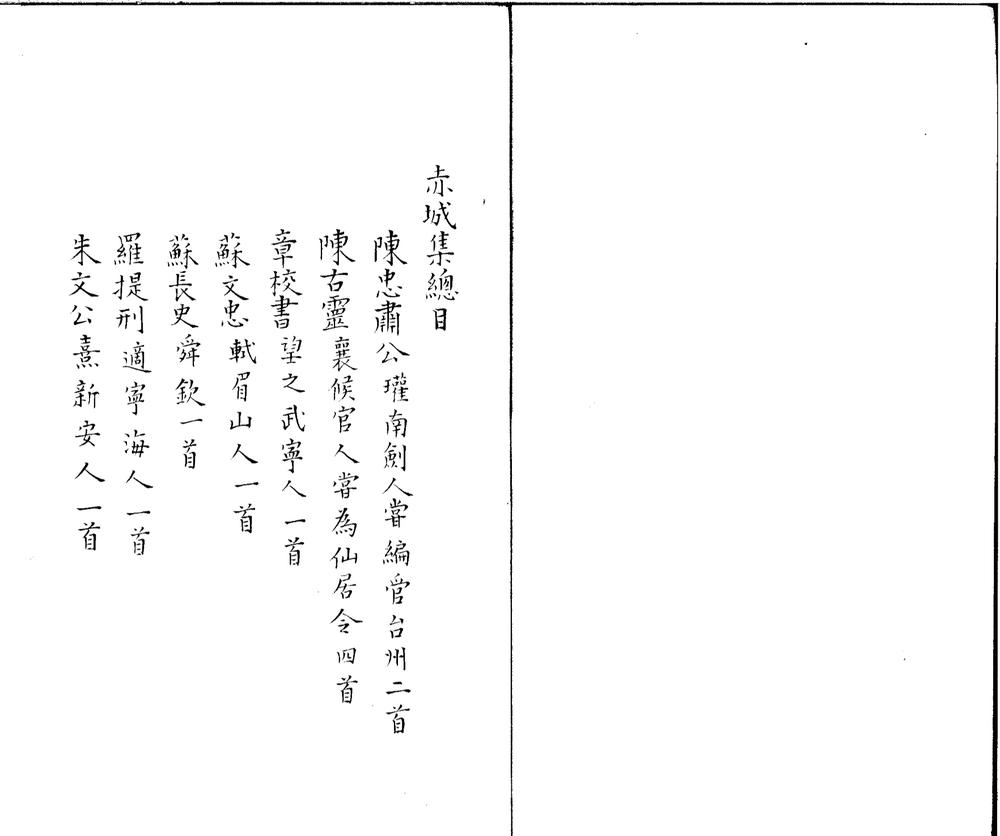 赤城集總目
陳忠肅公瓘南劍人甞編管台州二首
陳古靈襄候官人甞為仙居令四首
章校書望之武寧人一首
蘇文忠軾眉山人一首
蘇長史舜欽一首
羅提刑適寧海人一首
朱文公熹新安人一首